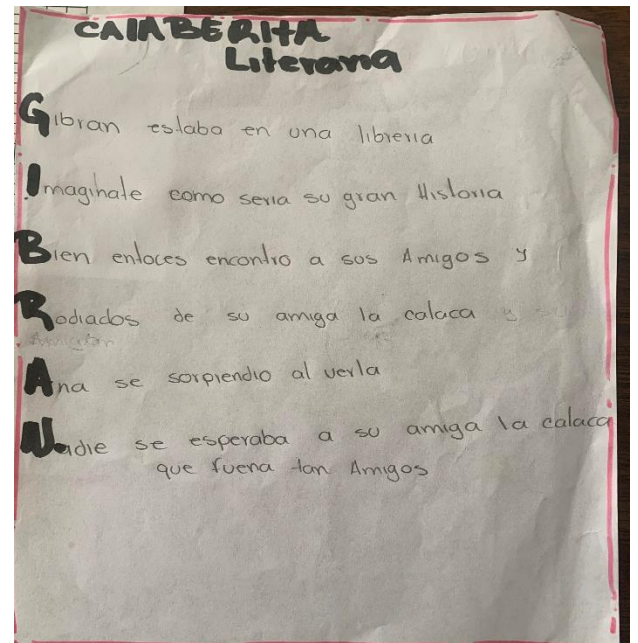 CAlABERItA
Literaria
Gibran estaba en una libreria
Imaginate como seria su gran Historia
Bien entoces encontro a sos Amigos y
Rodiados de su amiga la calaca y su
Ana se sorprendio al verla
Nadie se esperaba a su amiga la calaca
que fuera tan Amigos